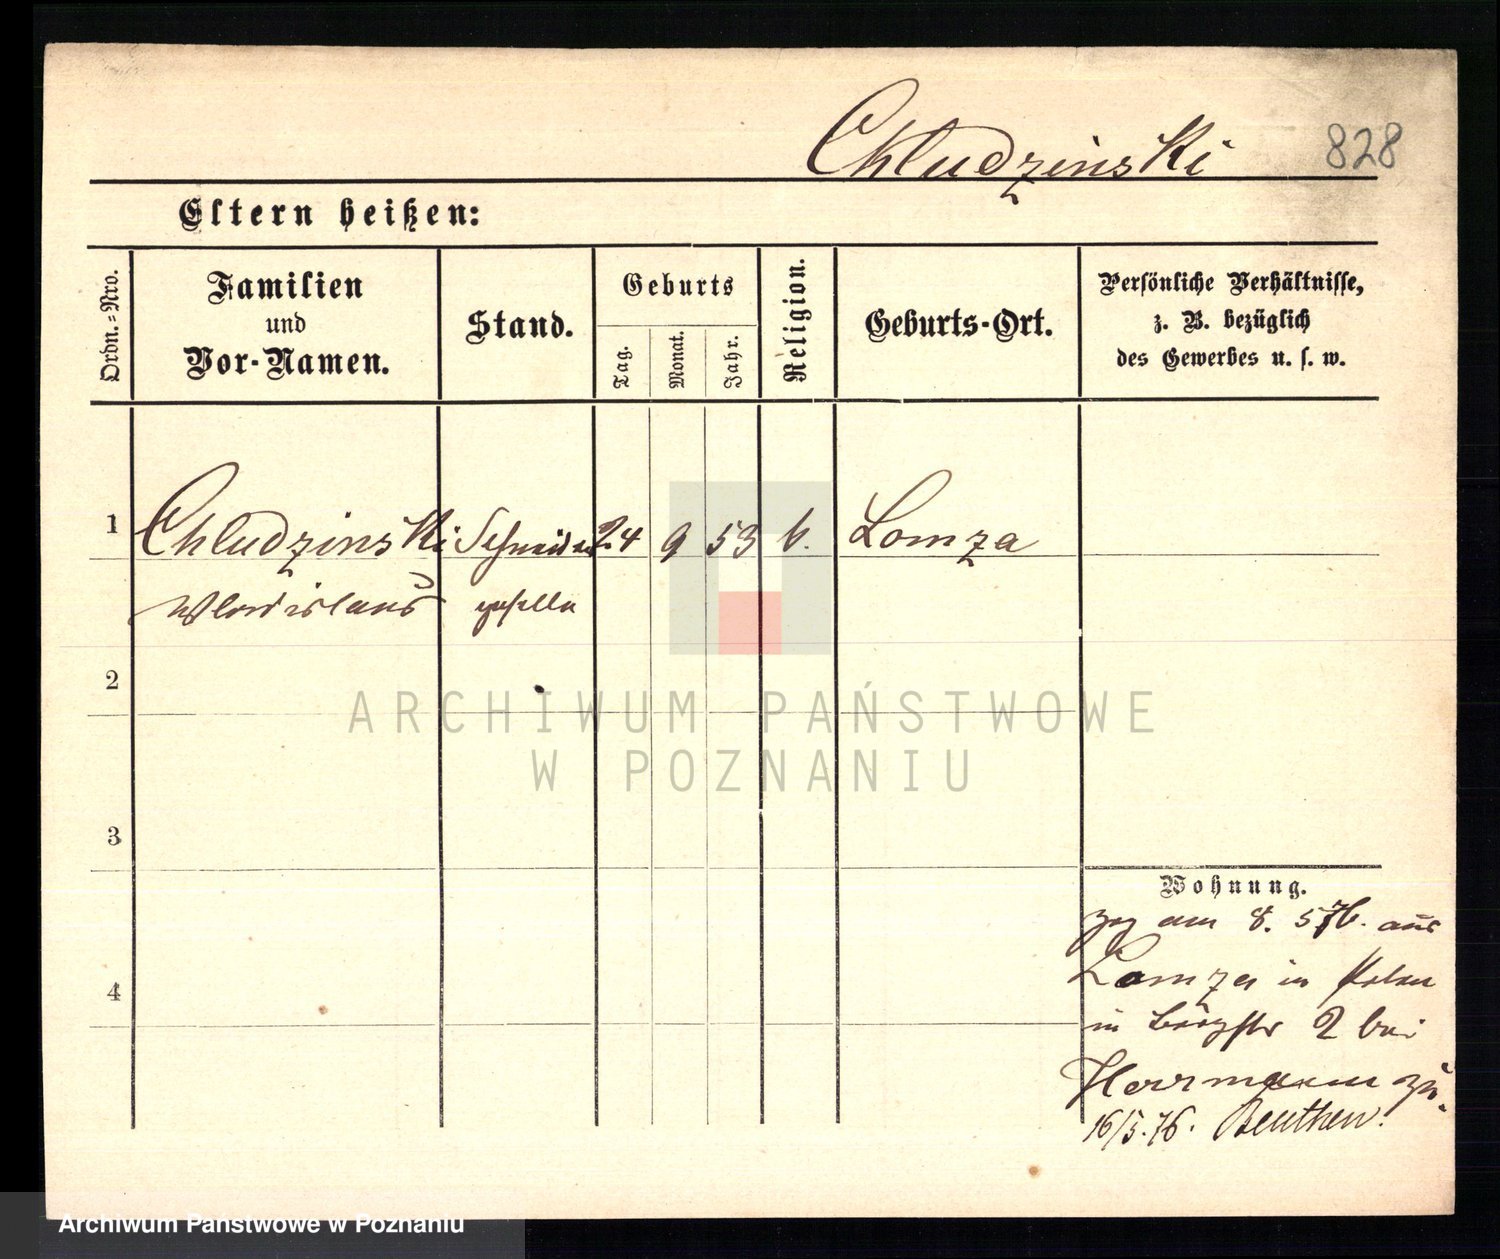 Chludzinski 828
Eltern heißen:
Ordn.-Nro.
Familien
und
Vor-Namen.
Stand.
Geburts
Tag.
Monat.
Jahr.
Religion.
Geburts-Ort.
Persönliche Verhältnisse,
z. B. bezüglich
des Gewerbes u. s. w.
1 Chludzinski Schneider 24 9 53 k. Lomza
Wladislaus geselle
2
ARCHIWUM PAŃSTWOWE
W POZNANIU
3
Wohnung.
zog am 8. 5 76. aus
Lomza in Polen
4
in 2 bei
Herrmann zu.
16/5.76. Beuthen.
Archiwum Państwowe w Poznaniu